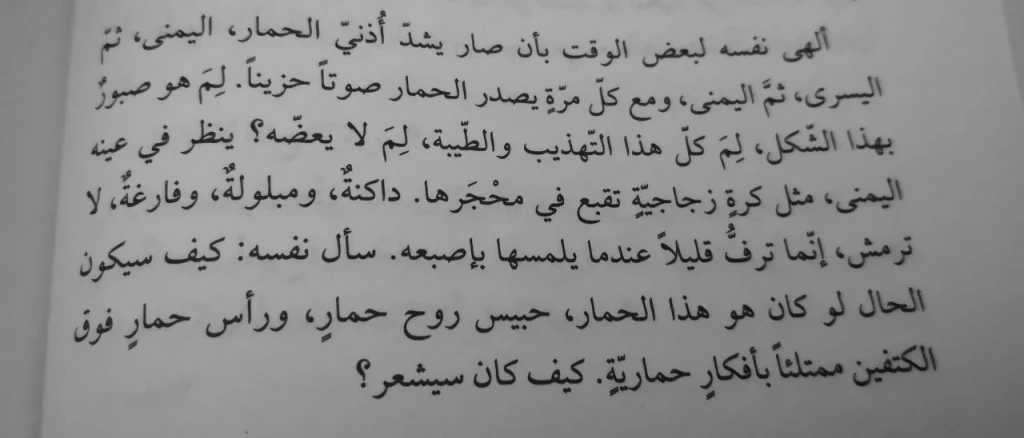 ألهى نفسه لبعض الوقت بأن صار يشدّ أُذنيّ الحمار، اليمنى، ثمّ
اليسرى، ثمَّ اليمنى، ومع كلّ مرّةٍ يصدر الحمار صوتاً حزيناً. لِمَ هو صبورٌ
بهذا الشّكل، لِمَ كلّ هذا التّهذيب والطّيبة، لِمَ لا يعضّه؟ ينظر في عينه
اليمنى، مثل كرةٍ زجاجيّةٍ تقبع في محْجَرها. داكنةٌ، ومبلولةٌ، وفارغةٌ، لا
ترمش، إنّما ترفُّ قليلاً عندما يلمسها بإصبعه. سأل نفسه: كيف سيكون
الحال لو كان هو هذا الحمار، حبيس روح حمارٍ، ورأس حمارٍ فوق
الكتفين ممتلئاً بأفكارٍ حماريّةٍ. كيف كان سيشعر؟